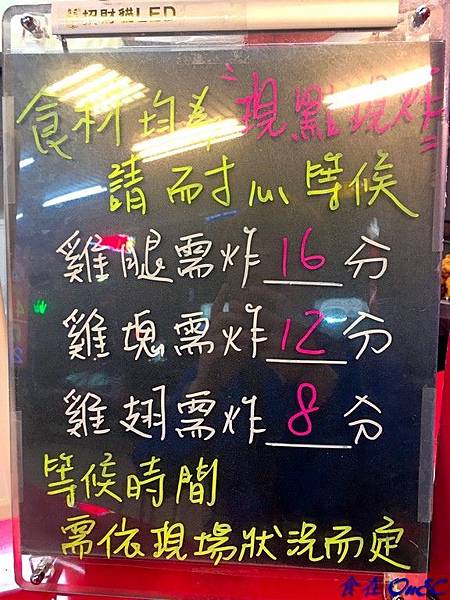 招財貓LED
食材均為"現點現炸"
請耐心等候
雞腿需炸16分
雞塊需炸12分
雞翅需炸8分
等候時間
需依現場狀況而定
食在OneC